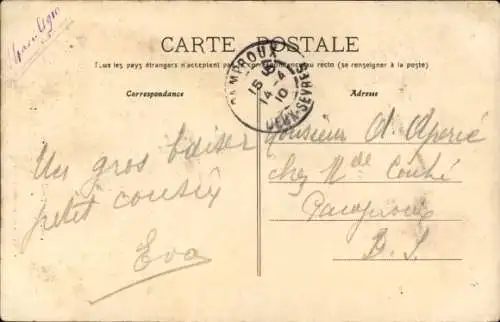 CARTE POSTALE
Tous les pays étrangers n'acceptent pas la correspondance au recto (se renseigner à la poste)
Correspondance
Adresse
15 5
14 - 4
10
DEUX-SÈVRES
Un gros baiser
petit cousin
Eva
Monsieur A.
chez Mde Couhé
D. S.